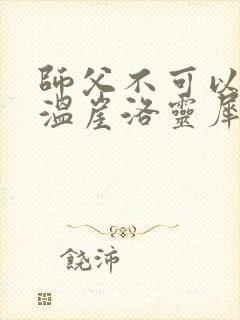 師父不可以
溫崖洛靈犀
饒沛